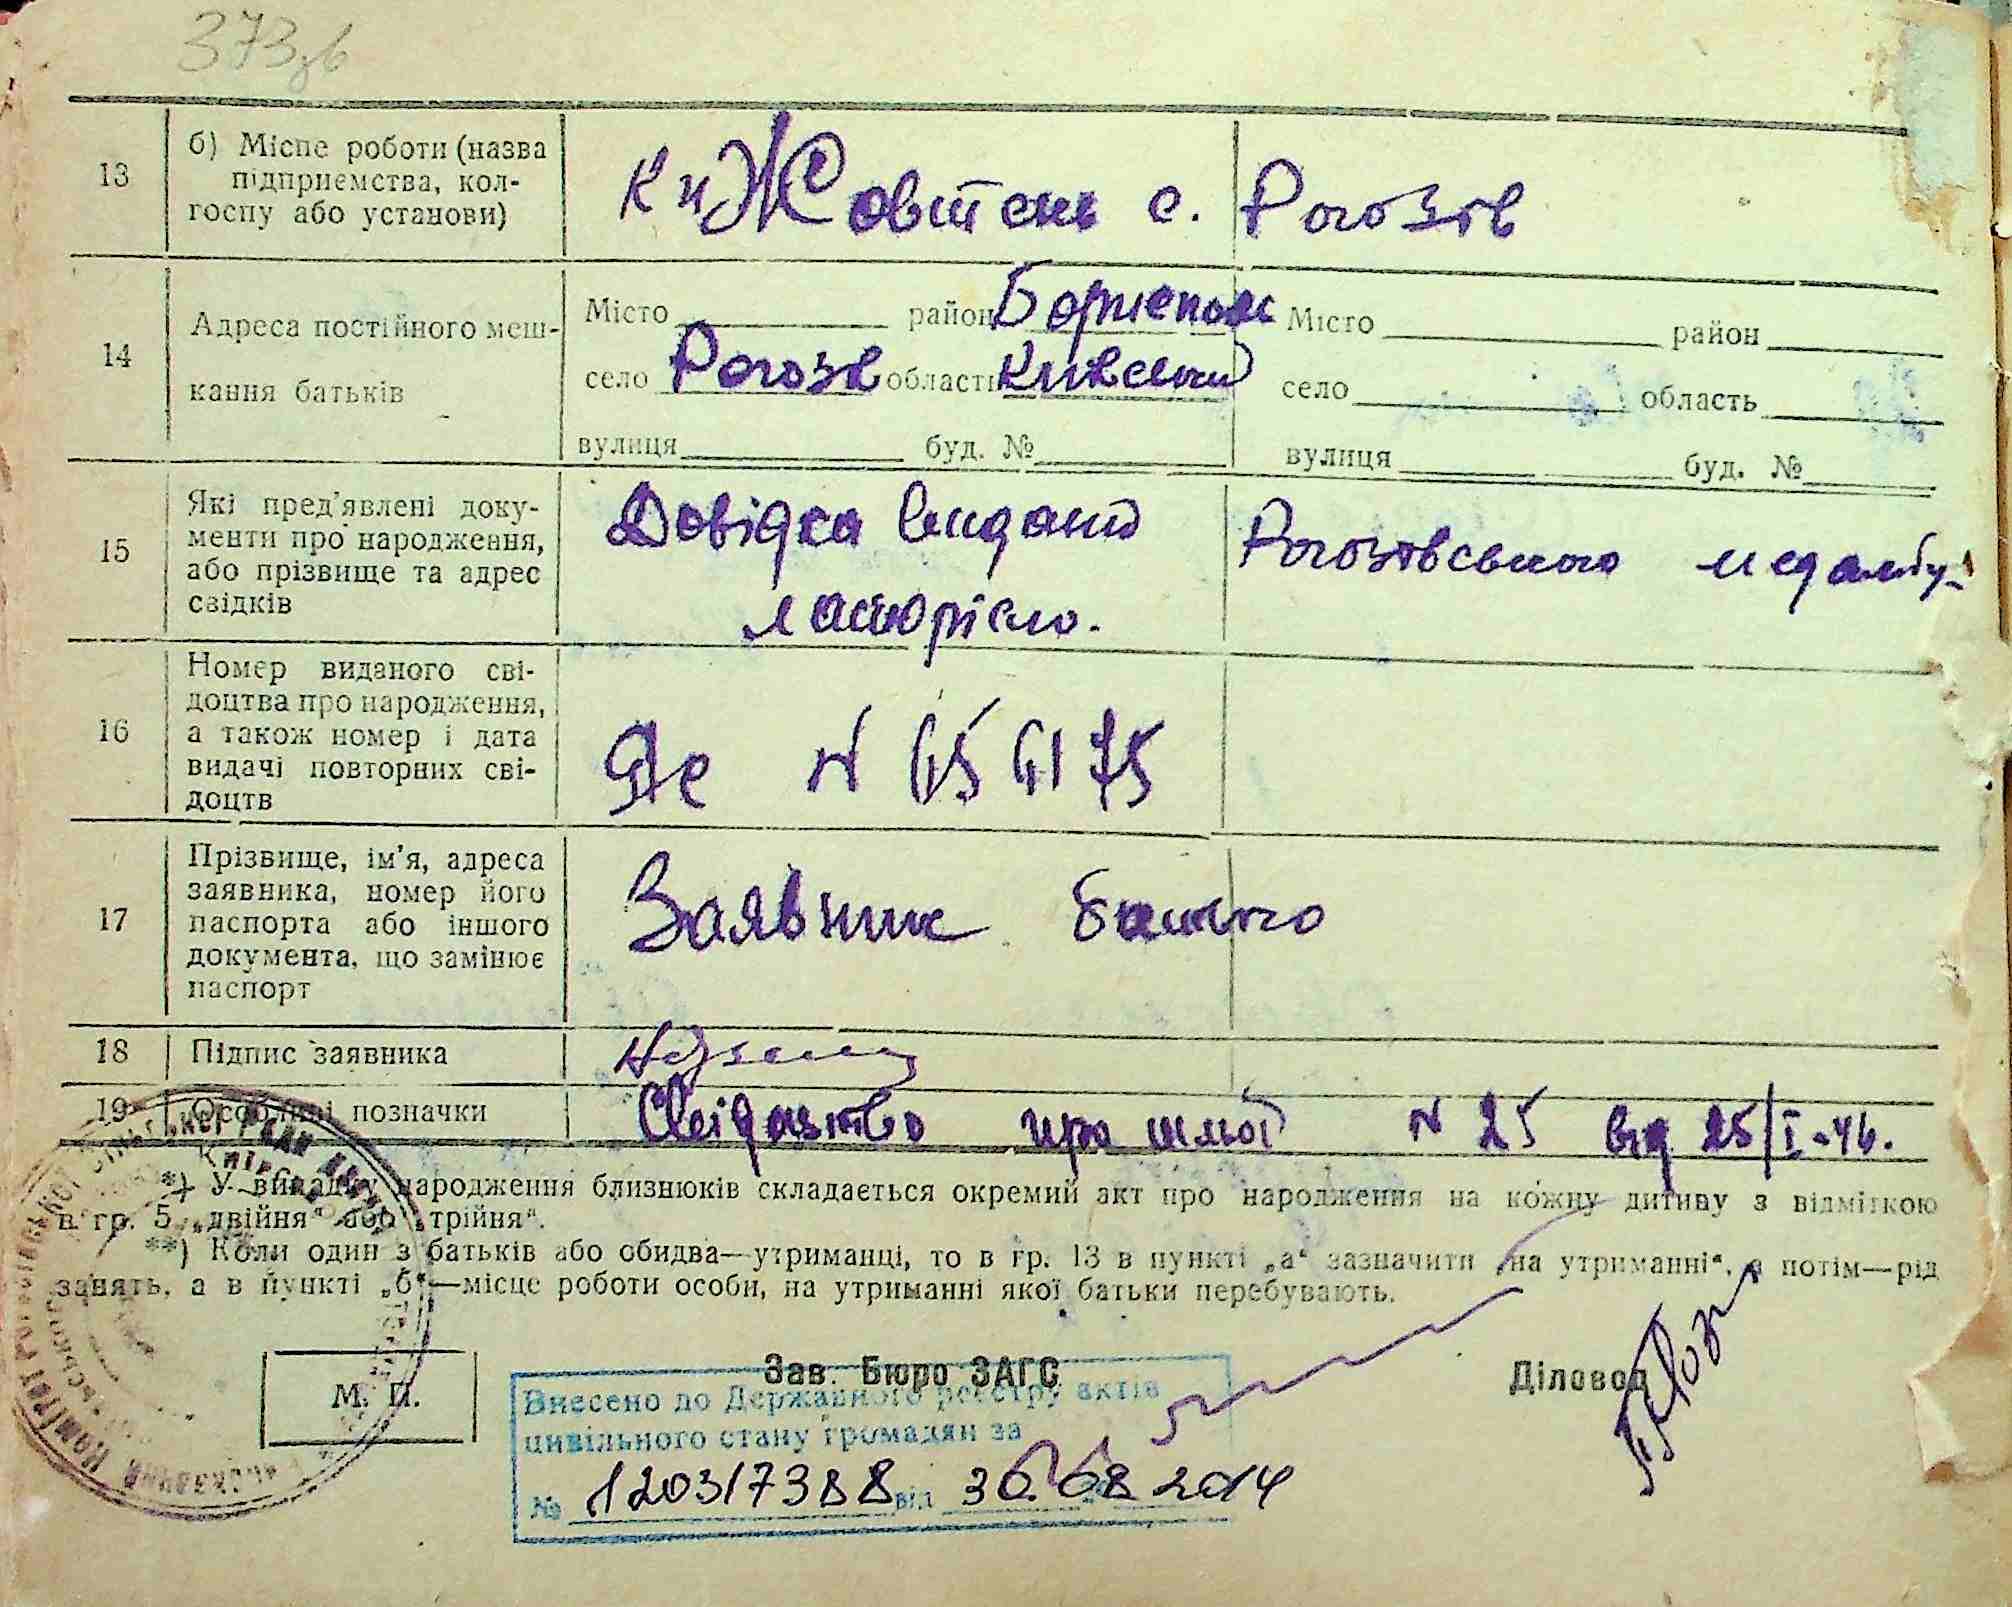 373зв
13 б) Місце роботи (назва підприємства, колгоспу або установи) к-п Жовтень с. Рогозів
14 Адреса постійного меш-
кання батьків
Місто район Бориспол Місто район
село Рогозв область Київській село область
вулиця буд. № вулиця буд. №
15 Які пред'явлені доку-
менти про народження,
або прізвище та адрес
свідків
Довідка видана Рогозовського медамбу-
латорією.
16 Номер виданого сві-
доцтва про народження,
а також номер і дата
видачі повторних сві-
доцтв
N 654175
17 Прізвище, ім'я, адреса
заявника, номер його
паспорта або іншого
документа, що замінює
паспорт
Заявник батько
18 Підпис заявника
19 Особливі позначки Свідоцтво про шлюб N 25 від 25/I-46.
*) У випадку народження близнюків складається окремий акт про народження на кожну дитину з відміткою
в гр. 5 „двійня“ або „трійня“.
**) Коли один з батьків або обидва—утриманці, то в гр. 13 в пункті „а“ зазначити „на утриманні“, а потім—рід
занять, а в пункті „б“—місце роботи особи, на утриманні якої батьки перебувають.
М. П.
Зав. Бюро ЗАГС
Діловод
Внесено до Державного реєстру актів
цивільного стану громадян за
№ 120317388 від 30.08.2014